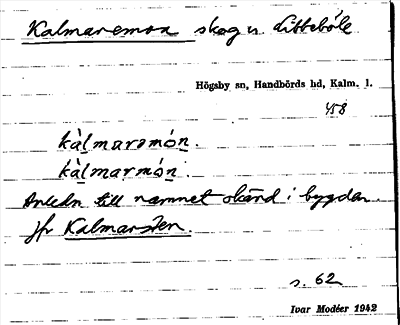 Kalmaremon skog u Libbeböle
Högsby sn, Handbörds hd, Kalm. l.
458
kàlmarəmón.
kàlmarmón.
Anledn till namnet okänd i bygden.
jfr Kalmarsten.
s. 62
Ivar Modéer 1942